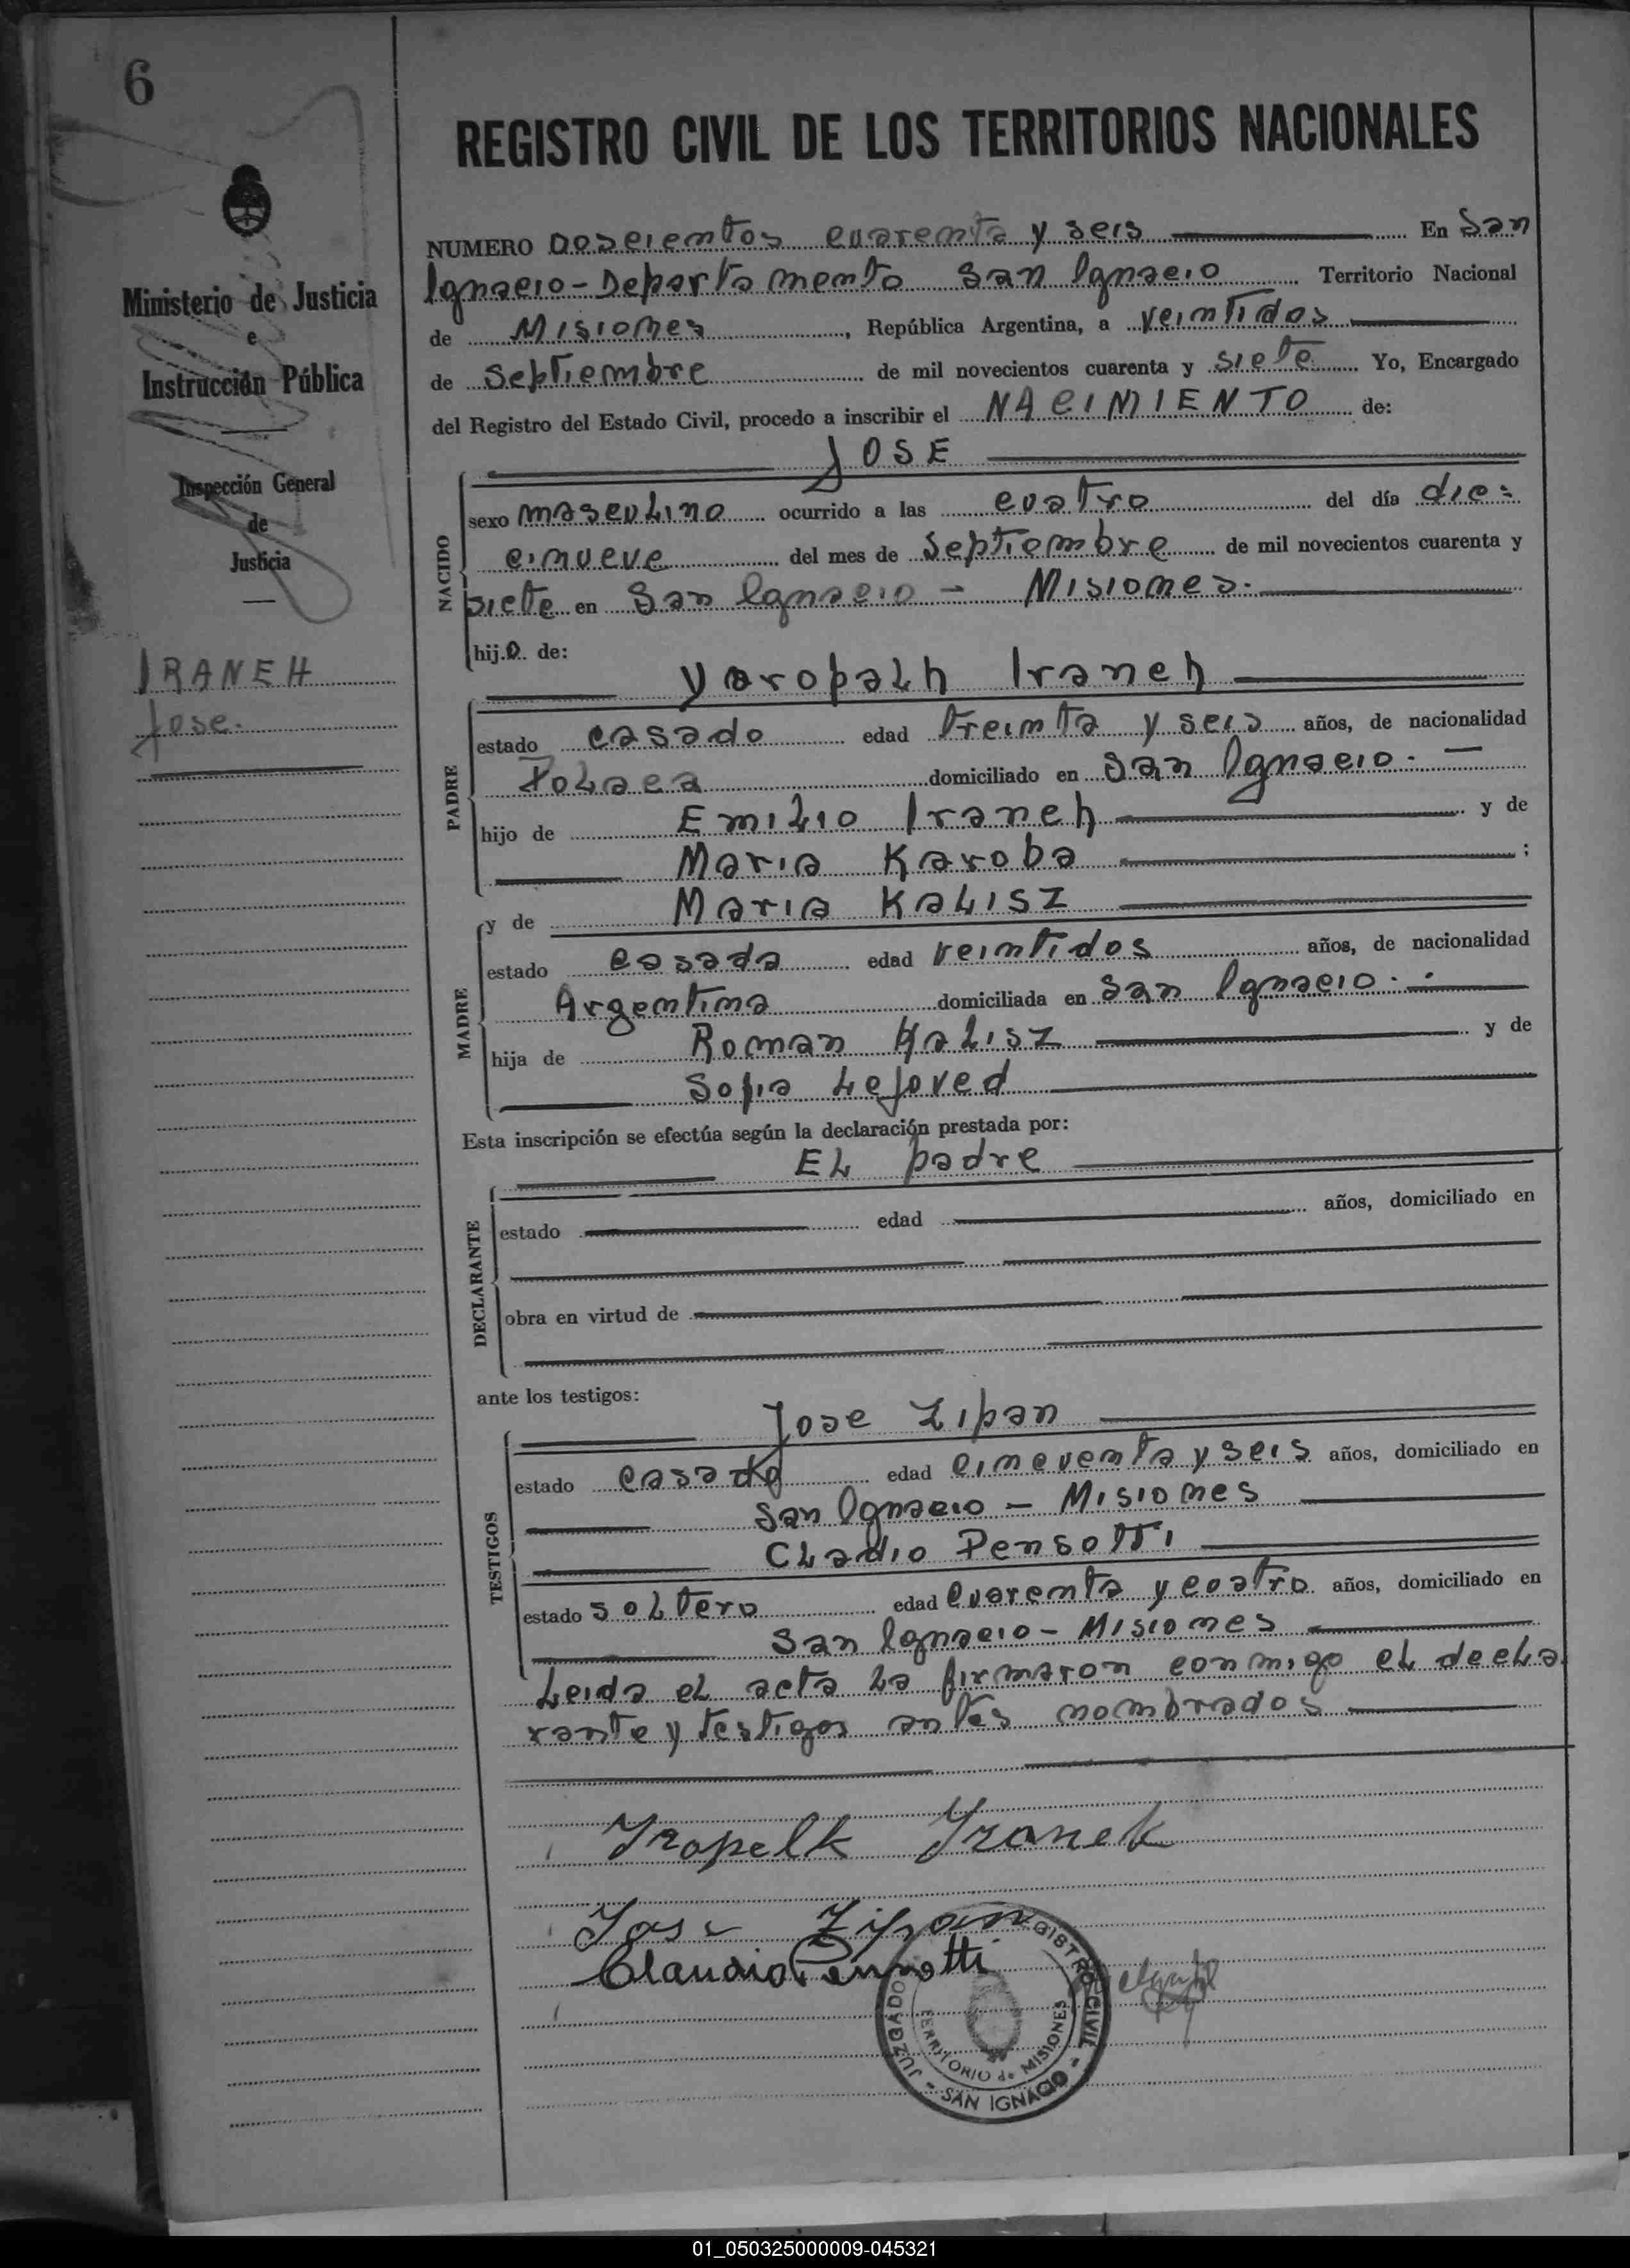 6
REGISTRO CIVIL DE LOS TERRITORIOS NACIONALES
Ministerio de Justicia
e
Instrucción Pública
Inspección General
de
Justicia
IRANEH
Jose.
NUMERO Doscientos cuarenta y seis En San
Ignacio - Departamento San Ignacio Territorio Nacional
de Misiones, República Argentina, a veintidos
de Septiembre de mil novecientos cuarenta y siete Yo, Encargado
del Registro del Estado Civil, procedo a inscribir el NACIMIENTO de:
JOSE
NACIDO
sexo masculino ocurrido a las cuatro del día die=
cinueve del mes de Septiembre de mil novecientos cuarenta y
siete en San Ignacio - Misiones.
hijo de:
Yaropalh Iraneh
PADRE
estado casado edad treinta y seis años, de nacionalidad
Polaca domiciliado en San Ignacio. -
hijo de Emilio Iraneh y de
Maria Karoba ;
y de Maria Kalisz
MADRE
estado casada edad veintidos años, de nacionalidad
Argentina domiciliada en San Ignacio. -
hija de Roman Kalisz y de
Sofia Lejoved
Esta inscripción se efectúa según la declaración prestada por:
El padre
DECLARANTE
estado edad años, domiciliado en
obra en virtud de
ante los testigos:
Jose Zipan
TESTIGOS
estado casado edad cincuenta y seis años, domiciliado en
San Ignacio - Misiones
Cladio Pensotti
estado soltero edad cuarenta y cuatro años, domiciliado en
San Ignacio - Misiones
Leida el acta la firmaron conmigo el decla
rante y testigos antes nombrados
Yropelk Yranek
Jose Zipan
Claudio Pensotti
JUZGADO REGISTRO CIVIL - SAN IGNACIO -
TERRITORIO de MISIONES
01_050325000009-045321